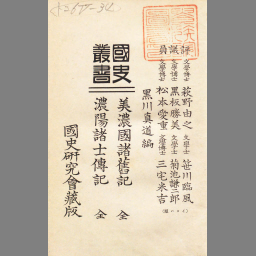 評議員
文學博士 萩野由之
文學博士 黑板勝美
文學博士 松本愛重
黑川真道編
文學士 笹川臨風
文學士 菊池謙二郎
文學博士 三宅米吉
(イロハ順)
國史叢書
美濃國諸舊記 全
濃陽諸士傳記 全
國史研究會藏版